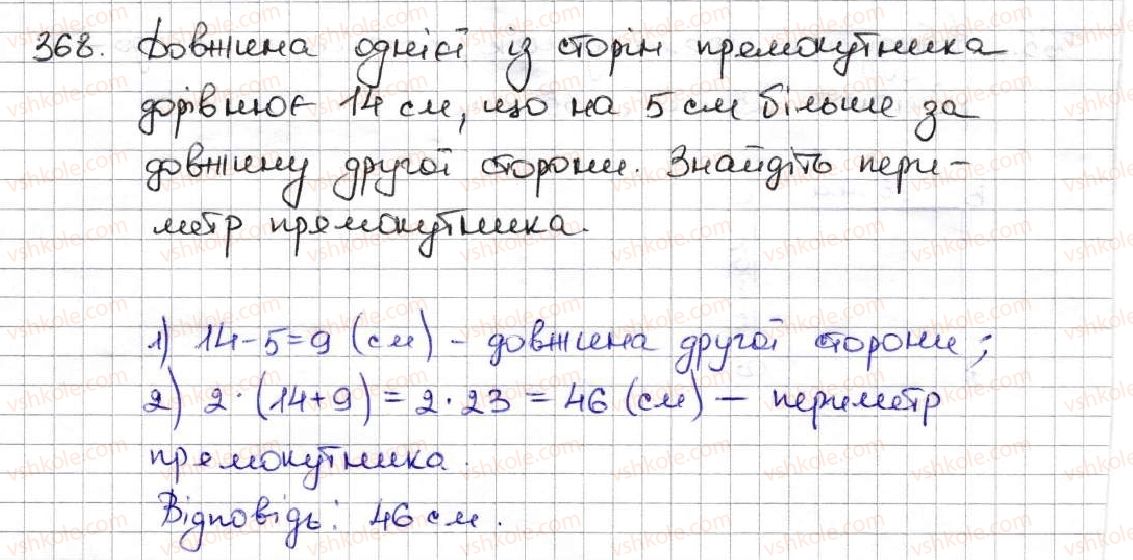 368. Довжина однієї із сторін прямокутника
дорівнює 14 см, що на 5 см більше за
довжину другої сторони. Знайдіть пери-
метр прямокутника.
1) 14-5=9 (см) - довжина другої сторони;
2) 2·(14+9)=2·23=46 (см) - периметр
прямокутника.
Відповідь: 46 см.